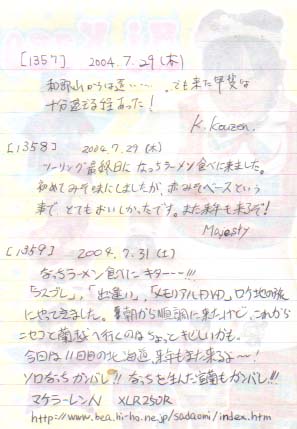 [1357] 2004.7.29(木)
和歌山からは遠い……。でも来た甲斐は
十分過ぎる程あった!
K.Kouzen.
[1358] 2004.7.29(木)
ツーリング最終日に なっちラーメン食べに来ました。
初めてみそ味にしましたが、赤みそベースという
事で、とてもおいしかったです。また来年も来るぞ!
Majesty
[1359] 2004.7.31(土)
なっちラーメン食べにキター---!!!
「ラスプレ」,「出逢い」,「メモリアルDVD」,ロケ地の旅
にやってきました。早朝から順調に来たけど、これから
ニセコと蘭越へ行くのはちょっときびしいかも。
今回は11回目の北海道、来年もまた来るよ〜!
ソロなっちガンバレ!! なっちを生んだ室蘭もガンバレ!!!
マケラーレンN XLR250R
http://www.bea.hi-ho.ne.jp/sadaomi/index.htm